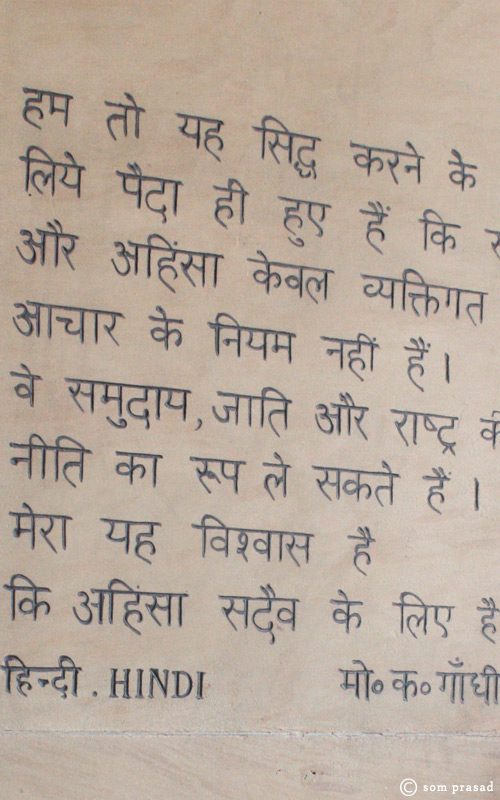 हम तो यह सिद्ध करने के
लिये पैदा ही हुए हैं कि
और अहिंसा केवल व्यक्तिगत
आचार के नियम नहीं हैं।
वे समुदाय, जाति और राष्ट्र
नीति का रूप ले सकते हैं।
मेरा यह विश्वास है
कि अहिंसा सदैव के लिए है
हिन्दी . HINDI मो॰ क॰ गाँधी
© som prasad